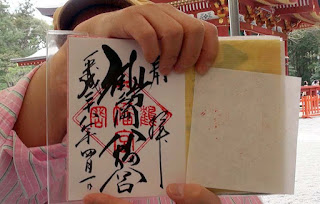 奉拝
鶴岡八幡宮
平成二十年四月一日